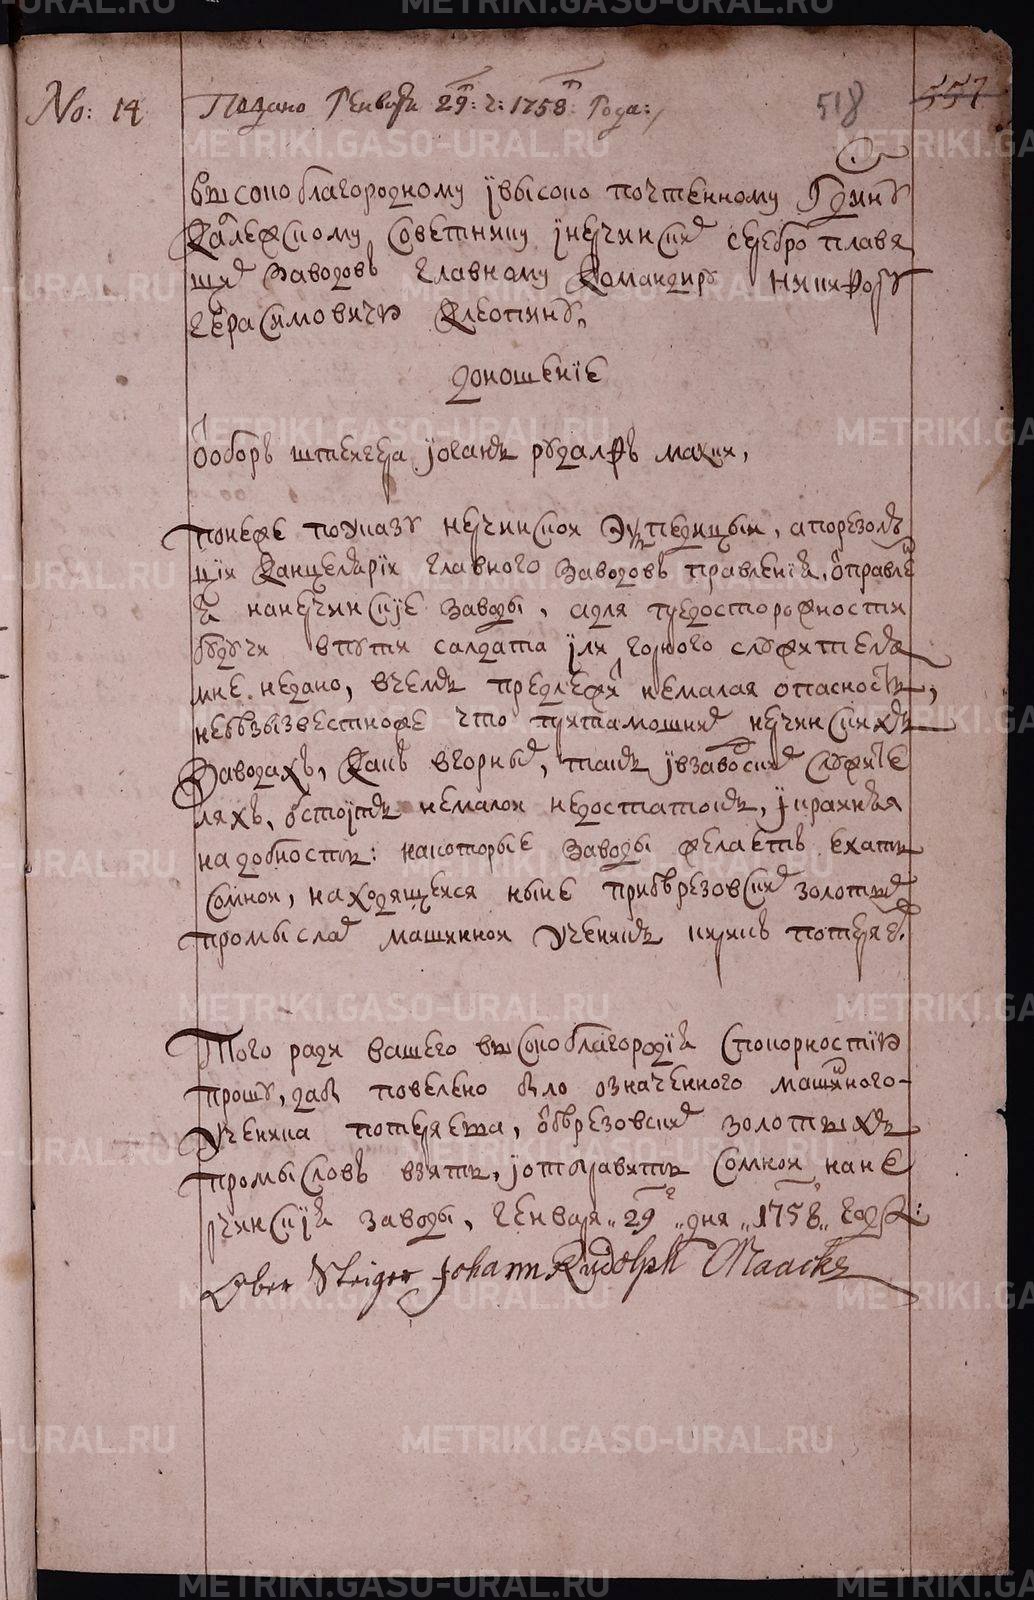 No: 14
Подано Генваря 29: ч: 1758: Года:
518
557
высокоблагородному ївысоко почтенному Гдину
Калежскому советнику їнерчинскихъ серебро плави
щихъ Заводовъ главному Командиру Никифору
Герасимовичю Клеопину,
доношенїе
ѿоборъ штеигера їоганъ рудалфъ маака,
понеже поуказу нерчинскои Экъпедицыи, апорезолю
цїи Канцелярїи главного Заводовъ правленїя, ѿправле
я нанерчинскїе заводы, адля предосторожности
будучи впути салдата їли горного служителя
мне недано, вчемъ предлежи немалая опасность,
небезызвестноже что притамошнихъ нерчинскихъ
Заводахъ, Какъ вгорныхъ, такъ їзаводскихъ служите
ляхъ, состоїтъ немалои недостатокъ, їкраиняя
надобность: накоторые заводы желаетъ ехать
сомнои, находящеися ныне приберезовскихъ золотыхъ
промыслахъ машиннои Ученикъ потеряе.
Того ради вашего высокоблагородїя спокорностїю
прошу, дабы повелено было означенного машинного
Ученика потеряева, ѿберезовскихъ золотыхъ
промысловъ взять, їотправить сомнои нане
рчинскїя заводы, генваря „29„ дня „1758„ году:
Ober Steiger Johann Rudolph Maacke
METRIKI.GASO-URAL.RU